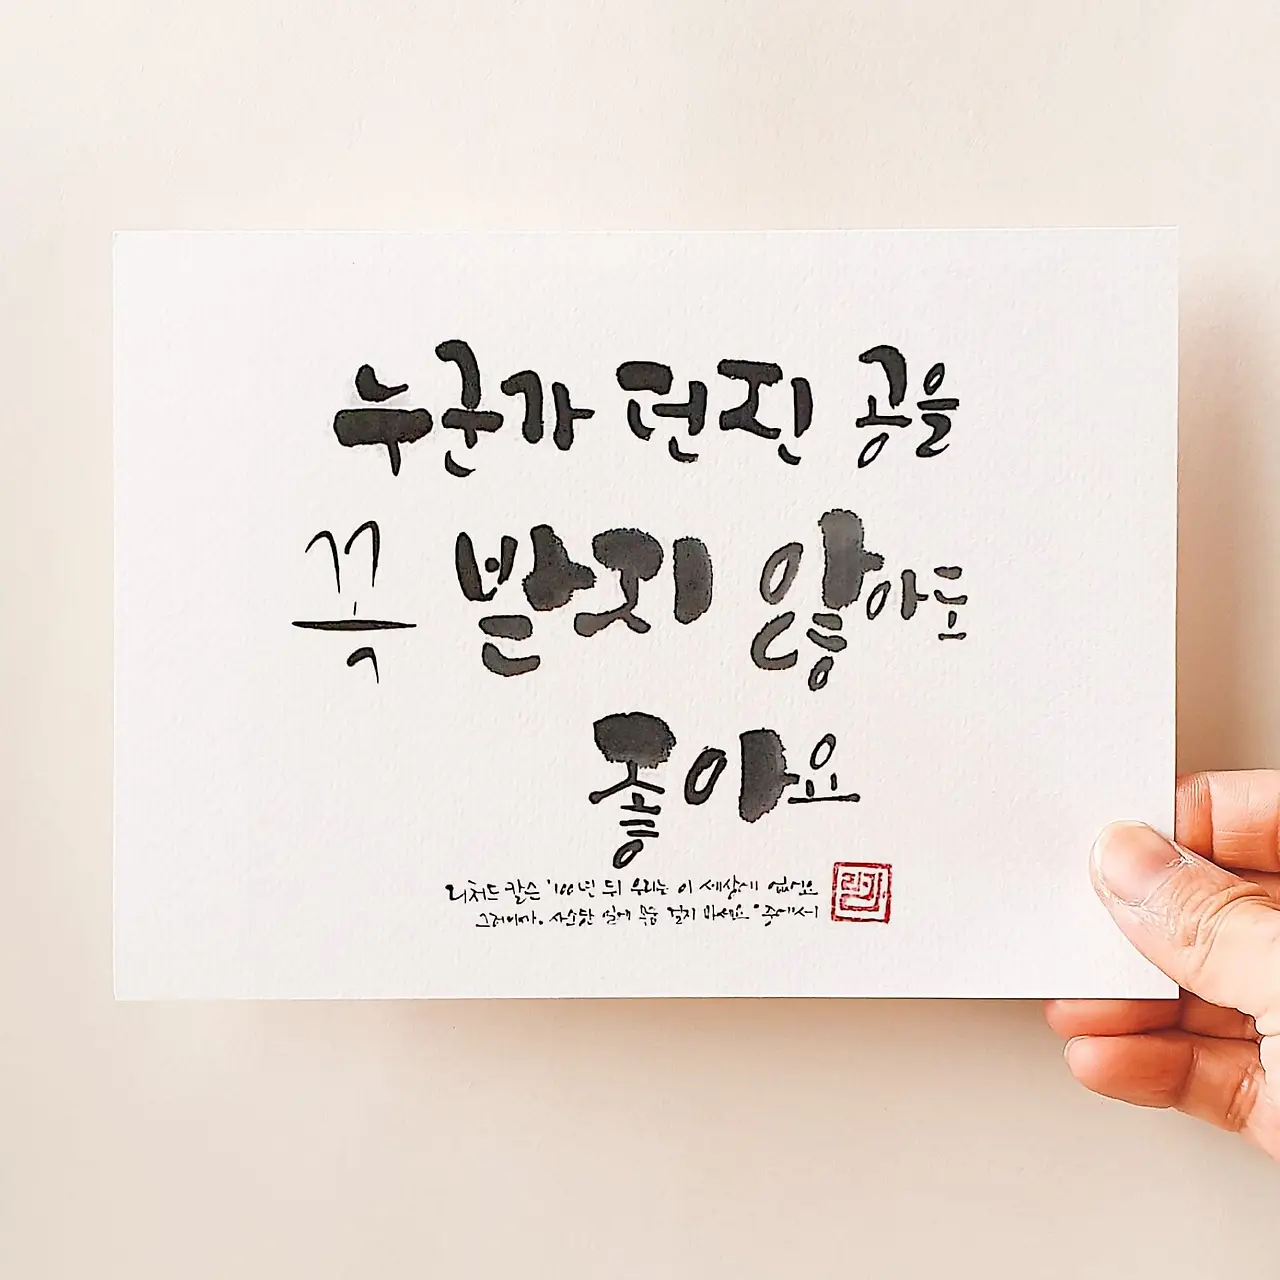 누군가 던진 공을
꼭 받지 않아도
좋아요
리처드 칼슨 '100년 뒤 우리는 이 세상에 없어요
그러니까, 사소한 일에 목숨 걸지 마세요' 중에서